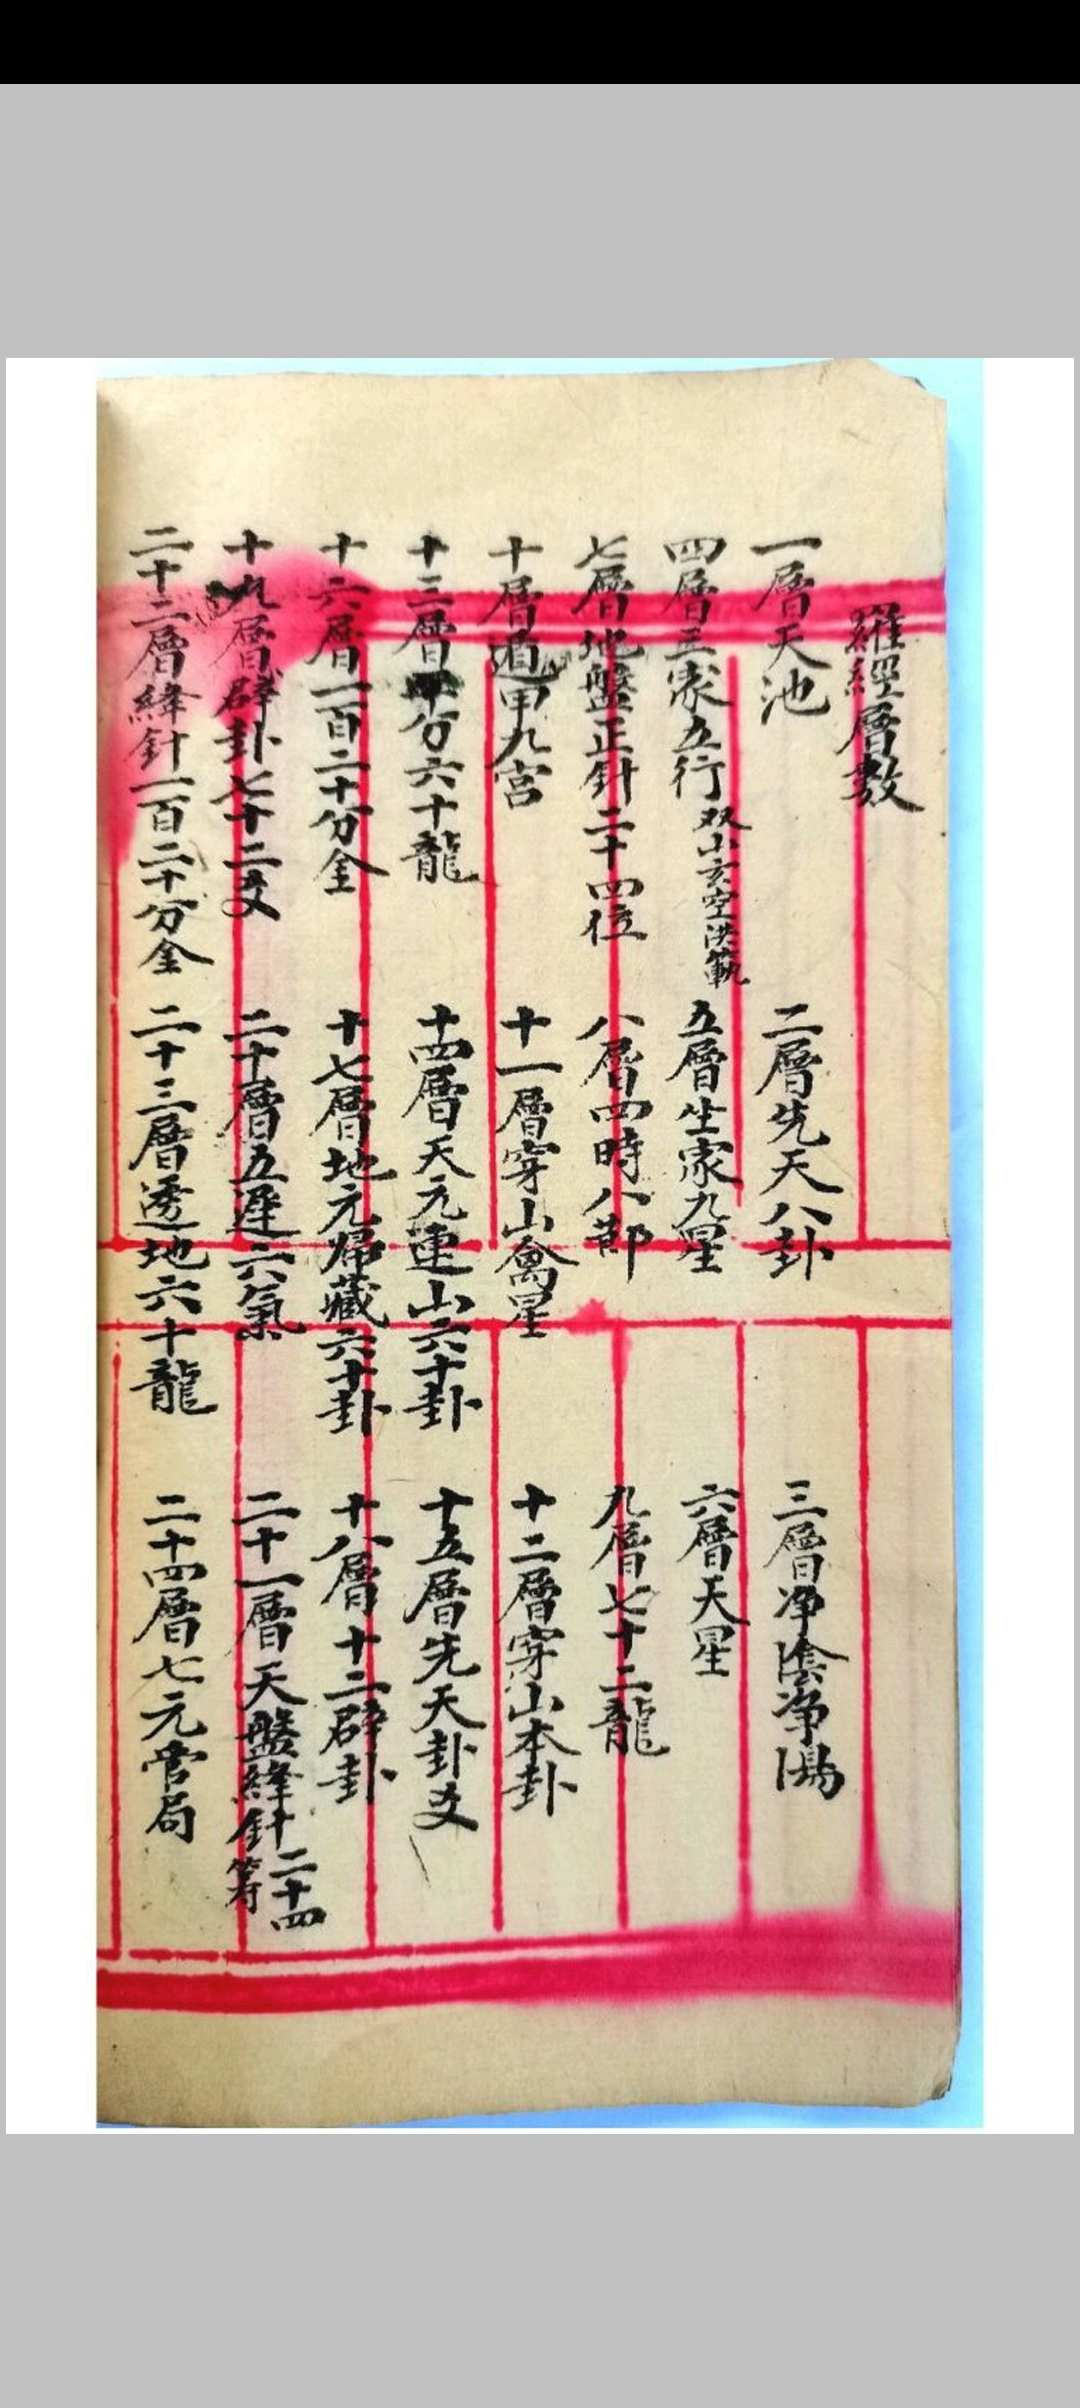 羅經層數
一層天池
二層先天八卦
三層净陰净陽
四層三家五行 双山玄空洪範
五層生家九星
六層天星
七層地盤正針二十四位
八層四時八節
九層七十二龍
十層遁甲九宮
十一層穿山禽星
十二層穿山本卦
十三層平分六十龍
十四層天元連山六十卦
十五層先天卦爻
十六層一百二十分金
十七層地元歸藏六十卦
十八層十二辟卦
十九層辟卦七十二爻
二十層五運六氣
二十一層天盤縫針二十四
二十二層縫針一百二十分金
二十三層透地六十龍
二十四層七元管局